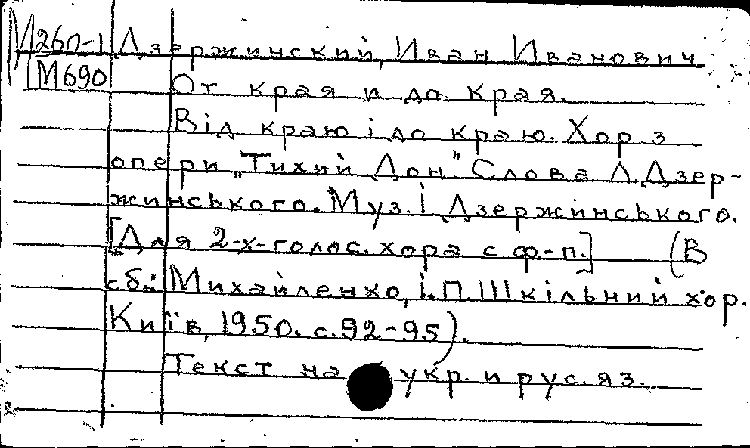 М260-1 Дзержинский, Иван Иванович
М690 От края и до края.
Від краю і до краю. Хор з
опери „Тихий Дон" Слова Л. Дзер-
жинського. Муз. І. Дзержинського.
[Для 2-х-голос. хора с ф-п.] (В
сб.: Михайленко, І. П. Шкільний хор.
Київ, 1950. с. 92-95).
Текст на укр. и рус. яз.